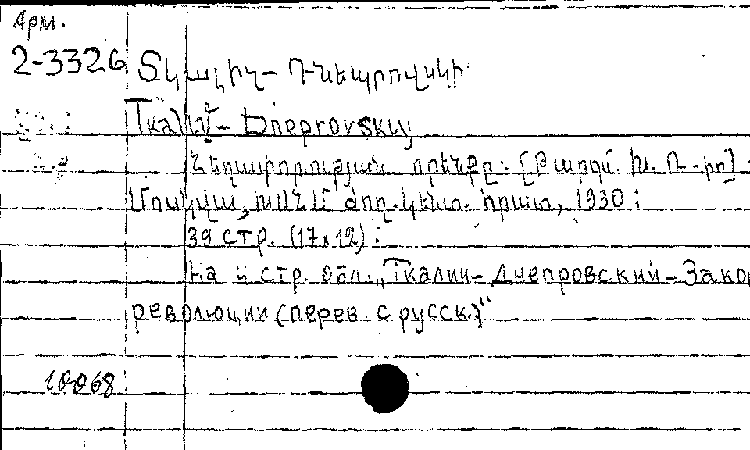 Арм.
2-3326 Տկալին- Դնեպրովսկի
Tkalin- Dneprovskiy
Հեղափոխության օրենքը. [Թարգմ.
Մոսկվա, ԽՍՀՄ ժող. կենտ. հրատ., 1930:
39 стр. (17x12):
На 4 стр. обл. „Ткалин- Днепровский-Закон
революции (перев. с русск.)“